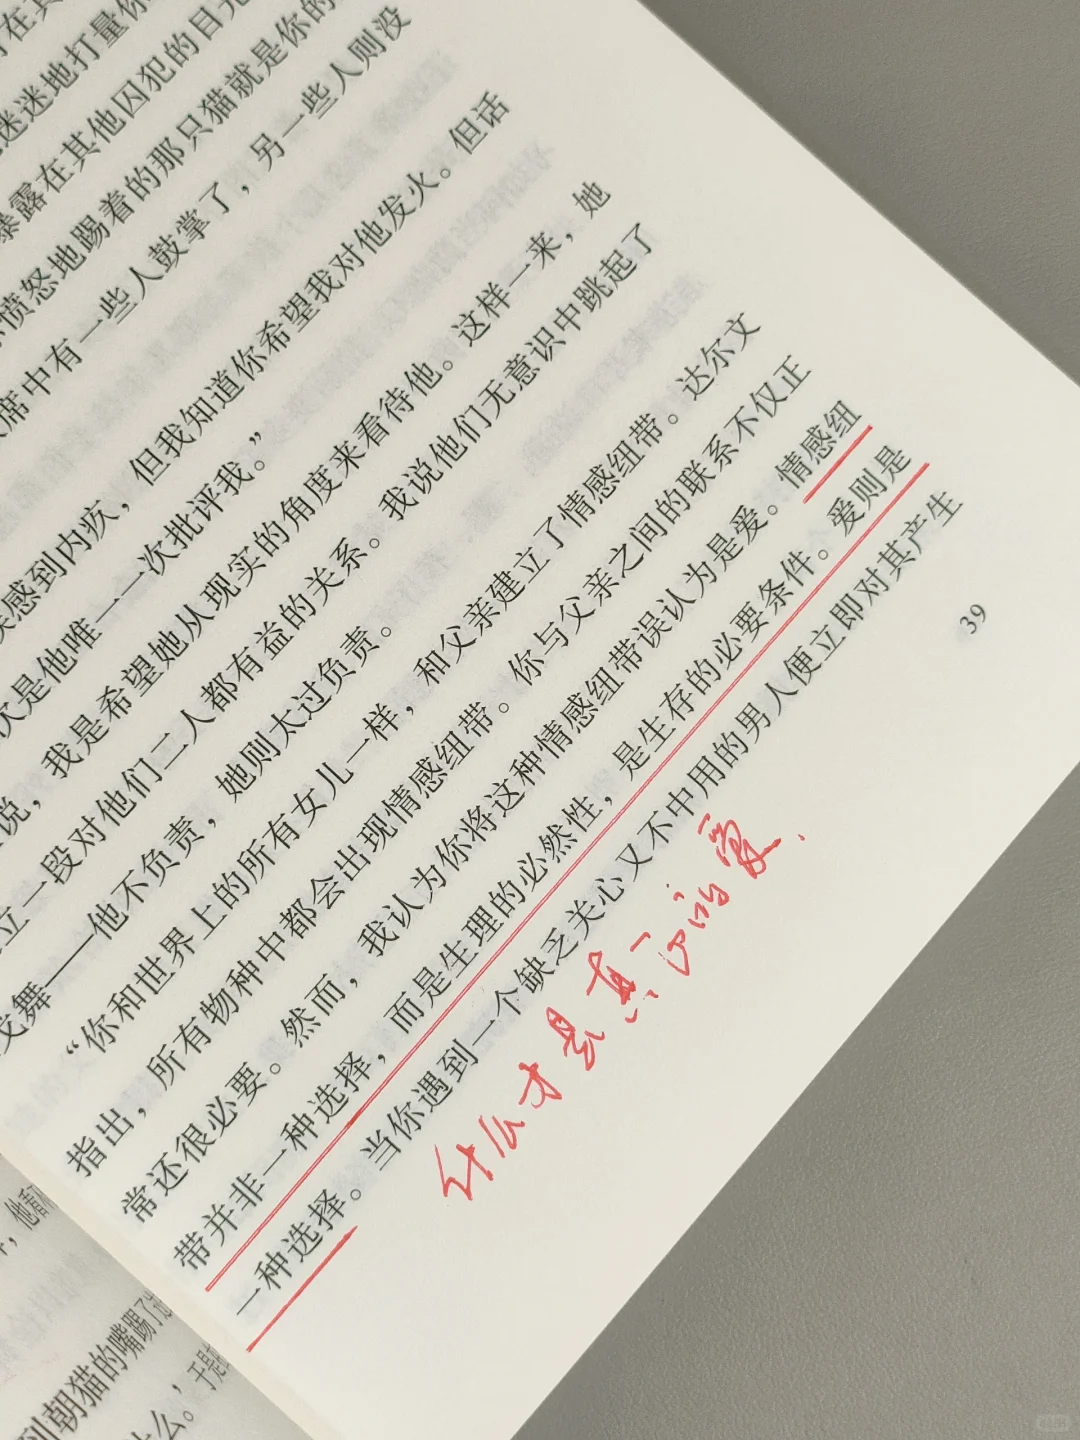 在其
迷迷地打量你
暴露在其他囚犯的目光
愤怒地踢着的那只猫就是你的
席中有一些人鼓掌了，另一些人则没
感到内疚，但我知道你希望我对他发火。但话
次是他唯一一次批评我。”
说，我是希望她从现实的角度来看待他。这样一来，她
立一段对他们二人都有益的关系。我说他们无意识中跳起了
交舞——他不负责，她则太过负责。
“你和世界上的所有女儿一样，和父亲建立了情感纽带。达尔文
指出，所有物种中都会出现情感纽带。你与父亲之间的联系不仅正
常还很必要。然而，我认为你将这种情感纽带误认为是爱。情感纽
带并非一种选择，而是生理的必然性，是生存的必要条件。爱则是
一种选择。当你遇到一个缺乏关心又不中用的男人便立即对其产生
什么才是真正的爱.
39
，他看
到朝猫的嘴踢了
什么。，于是